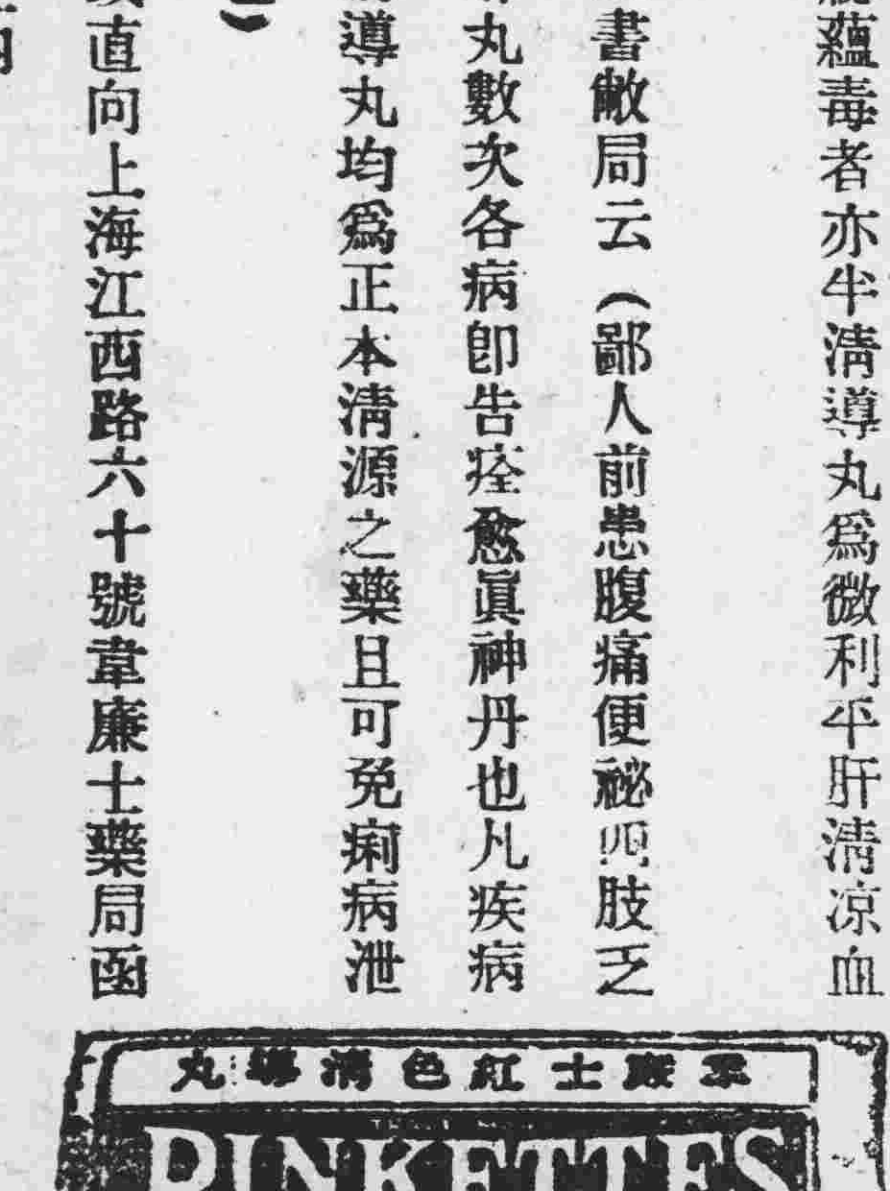 蘊毒者亦半清導丸爲微利平肝清凉血
書敝局云（鄙人前患腹痛便祕四肢乏
丸數次各病卽告痊愈眞神丹也凡疾病
導丸均爲正本清源之藥且可免痢病泄
）
直向上海江西路六十號韋廉士藥局函
丸導清色紅士廉韋
PINKETTES